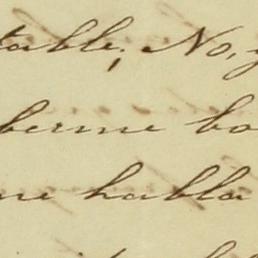 table; No, y
berme ba
me habla